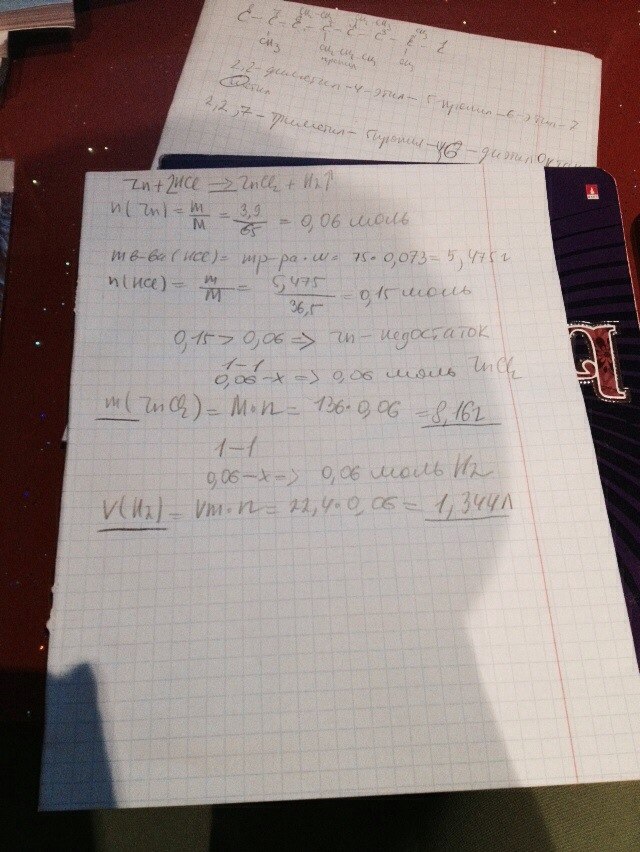 CH3
2,2-диметил-4-этил-5-пропил-6-этил-7
2,2,7-триметил-5пропил-4,6-диэтилоктан
Zn+2HCl → ZnCl2 + H2↑
n(Zn) = m/M = 3,9/65 = 0,06 моль
mв-ва(HCl) = mр-ра · w = 75 · 0,073 = 5,475г
n(HCl) = m/M = 5,475/36,5 = 0,15 моль
0,15 > 0,06 => Zn - недостаток
1-1
0,06-x => 0,06 моль ZnCl2
m(ZnCl2) = M·n = 136·0,06 = 8,16г
1-1
0,06-x => 0,06 моль H2
V(H2) = Vm·n = 22,4·0,06 = 1,344л